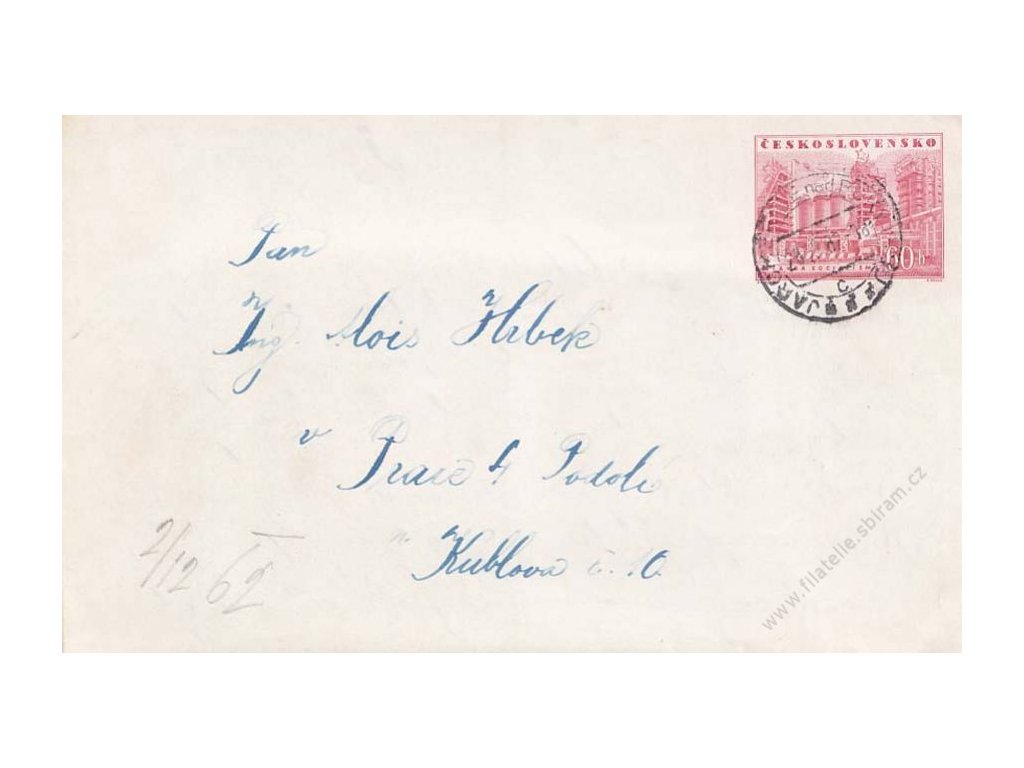 ČESKOSLOVENSKO
60 h
Pan
Ing. Alois Hrbek
v Praze 4 Podolí
Kublova č. 10.
2/12 62
www.filatelie.sbiram.cz